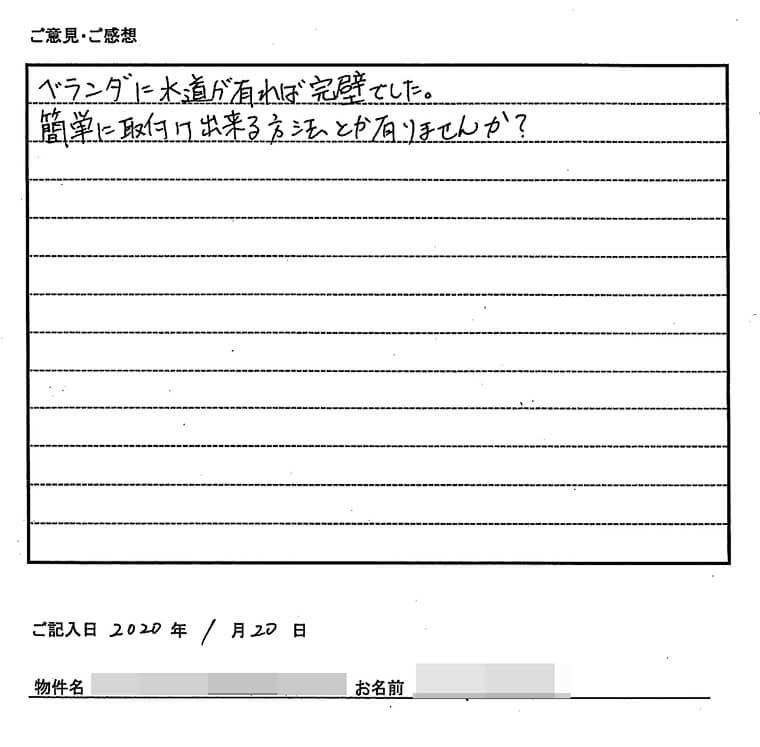 ご意見・ご感想
ベランダに水道が有れば完璧でした。
簡単に取付け出来る方法とか有りませんか？
ご記入日 2020 年 1 月 20 日
物件名 お名前